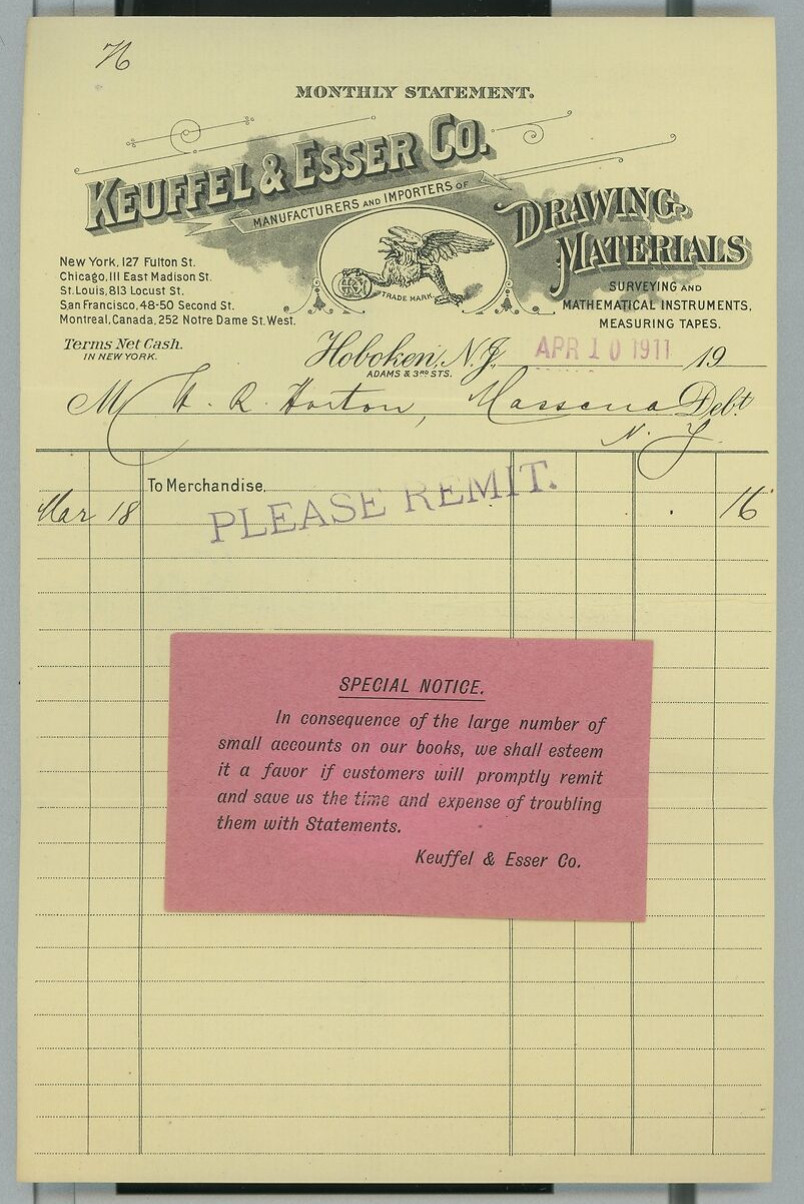 H
MONTHLY STATEMENT.
KEUFFEL & ESSER CO.
MANUFACTURERS AND IMPORTERS OF
DRAWING
MATERIALS
SURVEYING AND
MATHEMATICAL INSTRUMENTS,
MEASURING TAPES.
TRADE MARK
New York, 127 Fulton St.
Chicago, 111 East Madison St.
St. Louis, 813 Locust St.
San Francisco, 48-50 Second St.
Montreal, Canada, 252 Notre Dame St. West.
Terms Net Cash.
IN NEW YORK.
Hoboken, N.J. APR 10 1911 19
ADAMS & 3RD STS.
M H. R. Horton, Massena Debt.
N. Y.
To Merchandise.
PLEASE REMIT.
Mar 18 . 16
SPECIAL NOTICE.
In consequence of the large number of
small accounts on our books, we shall esteem
it a favor if customers will promptly remit
and save us the time and expense of troubling
them with Statements.
Keuffel & Esser Co.